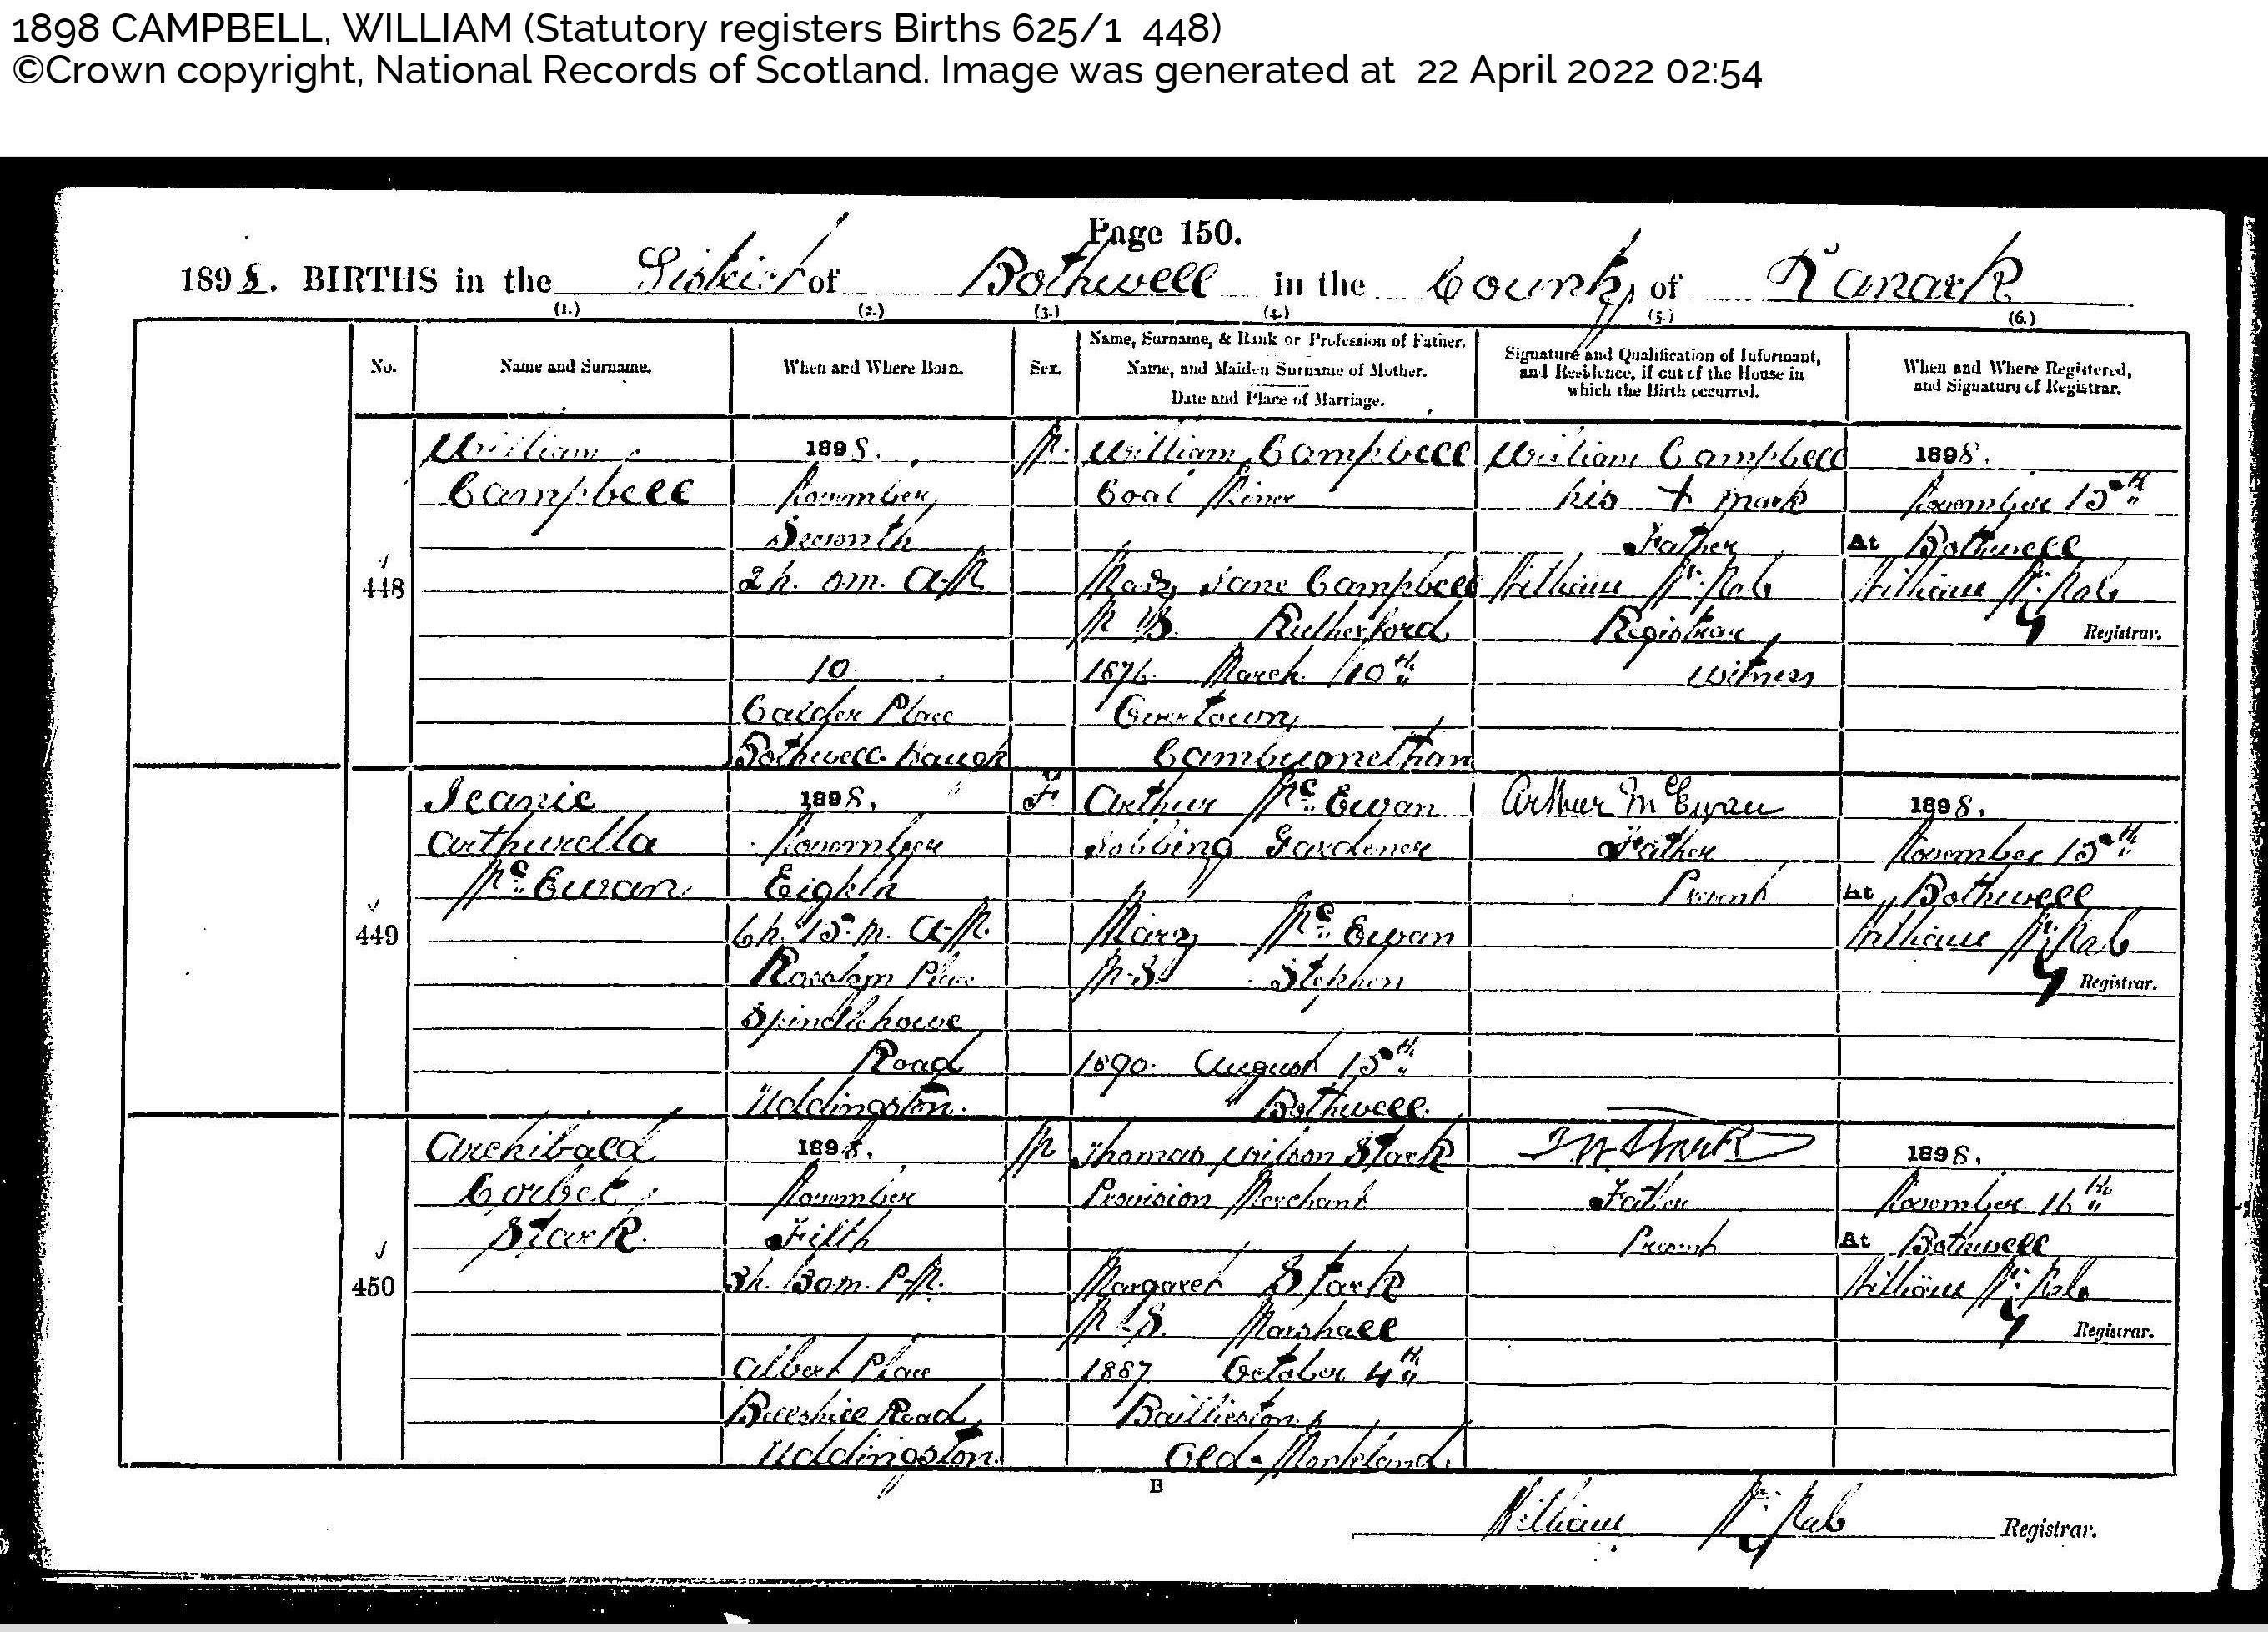 1898 CAMPBELL, WILLIAM (Statutory registers Births 625/1 448)
©Crown copyright, National Records of Scotland. Image was generated at 22 April 2022 02:54
Page 150.
1898. BIRTHS in the District of Bothwell in the County of Lanark
(1.) (2.) (3.) (4.) (5.) (6.)
No.
Name and Surname.
When and Where Born.
Sex.
Name, Surname, & Rank or Profession of Father.
Name, and Maiden Surname of Mother.
Date and Place of Marriage.
Signature and Qualification of Informant,
and Residence, if out of the House in
which the Birth occurred.
When and Where Registered,
and Signature of Registrar.
448
William
Campbell
1898.
November
Seventh
2h. 0m. A.M.
10
Calder Place
Bothwell-haugh
M.
William Campbell
Coal Miner
Mary Jane Campbell
M.S. Rutherford
1876 March 10th
Overtown
Cambusnethan
William Campbell
his + mark
Father
William McNab
Registrar
witness
1898.
November 15th
At Bothwell
William McNab
Registrar.
449
Jeanie
Arthurella
McEwan
1898.
November
Eighth
6h. 15m. A.M.
Rosslyn Place
Spindlehowe
Road
Uddingston.
F
Arthur McEwan
Jobbing Gardener
Mary McEwan
M.S. Stephen
1890. August 15th
Bothwell.
Arthur McEwan
Father
Present
1898.
November 15th
At Bothwell
William McNab
Registrar.
450
Archibald
Corbet
Stark.
1898.
November
Fifth
3h. 30m. P.M.
Albert Place
Bellshill Road
Uddingston.
M
Thomas Wilson Stark
Provision Merchant
Margaret Stark
M.S. Marshall
1887 October 4th
Baillieston
Old-Monkland
T W Stark
Father
Present
1898.
November 16th
At Bothwell
William McNab
Registrar.
B
William McNab Registrar.